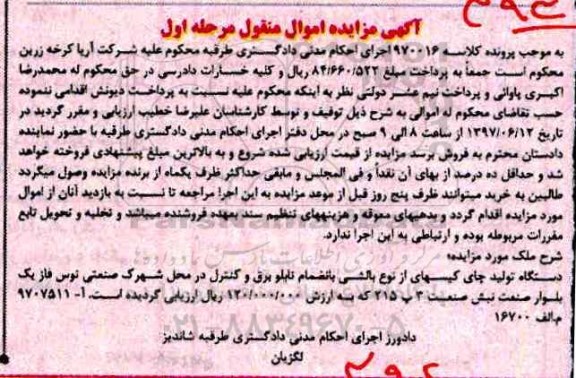 آگهی مزایده اموال منقول مرحله اول
به موجب پرونده کلاسه ۹۷۰۰۱۶ اجرای احکام مدنی دادگستری طرقبه محکوم علیه شرکت آریا کرخه زرین
محکوم است جمعاً به پرداخت مبلغ ۸۴/۶۶۰/۵۲۲ ریال و کلیه خسارات دادرسی در حق محکوم له محمدرضا
اکبری پاوائی و پرداخت نیم عشر دولتی نظر به اینکه محکوم علیه نسبت به پرداخت دیونش اقدامی ننموده
حسب تقاضای محکوم له اموالی به شرح ذیل توقیف و توسط کارشناسان علیرضا خطیب ارزیابی و مقرر گردید در
تاریخ ۱۳۹۷/۰۶/۱۲ از ساعت ۸ الی ۹ صبح در محل دفتر اجرای احکام مدنی دادگستری طرقبه با حضور نماینده
دادستان محترم به فروش برسد مزایده از قیمت ارزیابی شده شروع و به بالاترین مبلغ پیشنهادی فروخته خواهد
شد و حداقل ده درصد از بهای آن نقداً و فی المجلس و مابقی حداکثر ظرف یکماه از برنده مزایده وصول میگردد
طالبین به خرید میتوانند ظرف پنج روز قبل از موعد مزایده به این اجرا مراجعه تا نسبت به بازدید آنان از اموال
مورد مزایده اقدام گردد و بدهیهای معوقه و هزینههای تنظیم سند بعهده فروشنده میباشد و تخلیه و تحویل تابع
مقررات مربوطه بوده و ارتباطی به این اجرا ندارد.
شرح ملک مورد مزایده:
دستگاه تولید چای کیسهای از نوع بالشی بانضمام تابلو برق و کنترل در محل شهرک صنعتی توس فاز یک
بلوار صنعت نبش صنعت ۳ پ ۲۱۵ که بته ارزش ۱۲۰/۰۰۰/۰۰۰ ریال ارزیابی گردیده است. آ- ۹۷۰۷۵۱۱
م.الف ۱۶۷۰۰
دادورز اجرای احکام مدنی دادگستری طرقبه شاندیز
لگزیان
۰۲۱-۸۸۳۴۹۶۷۰-۵